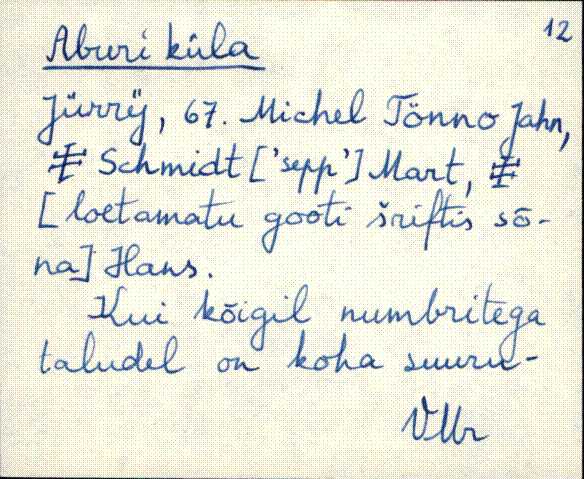 12
Aburi küla
Jürrÿ, 67. Michel Tönno Jahn,
Schmidt ['sepp'] Mart,
[loetamatu gooti šriftis sõ-
na] Hans.
Kui kõigil numbritega
taludel on koha suuru-